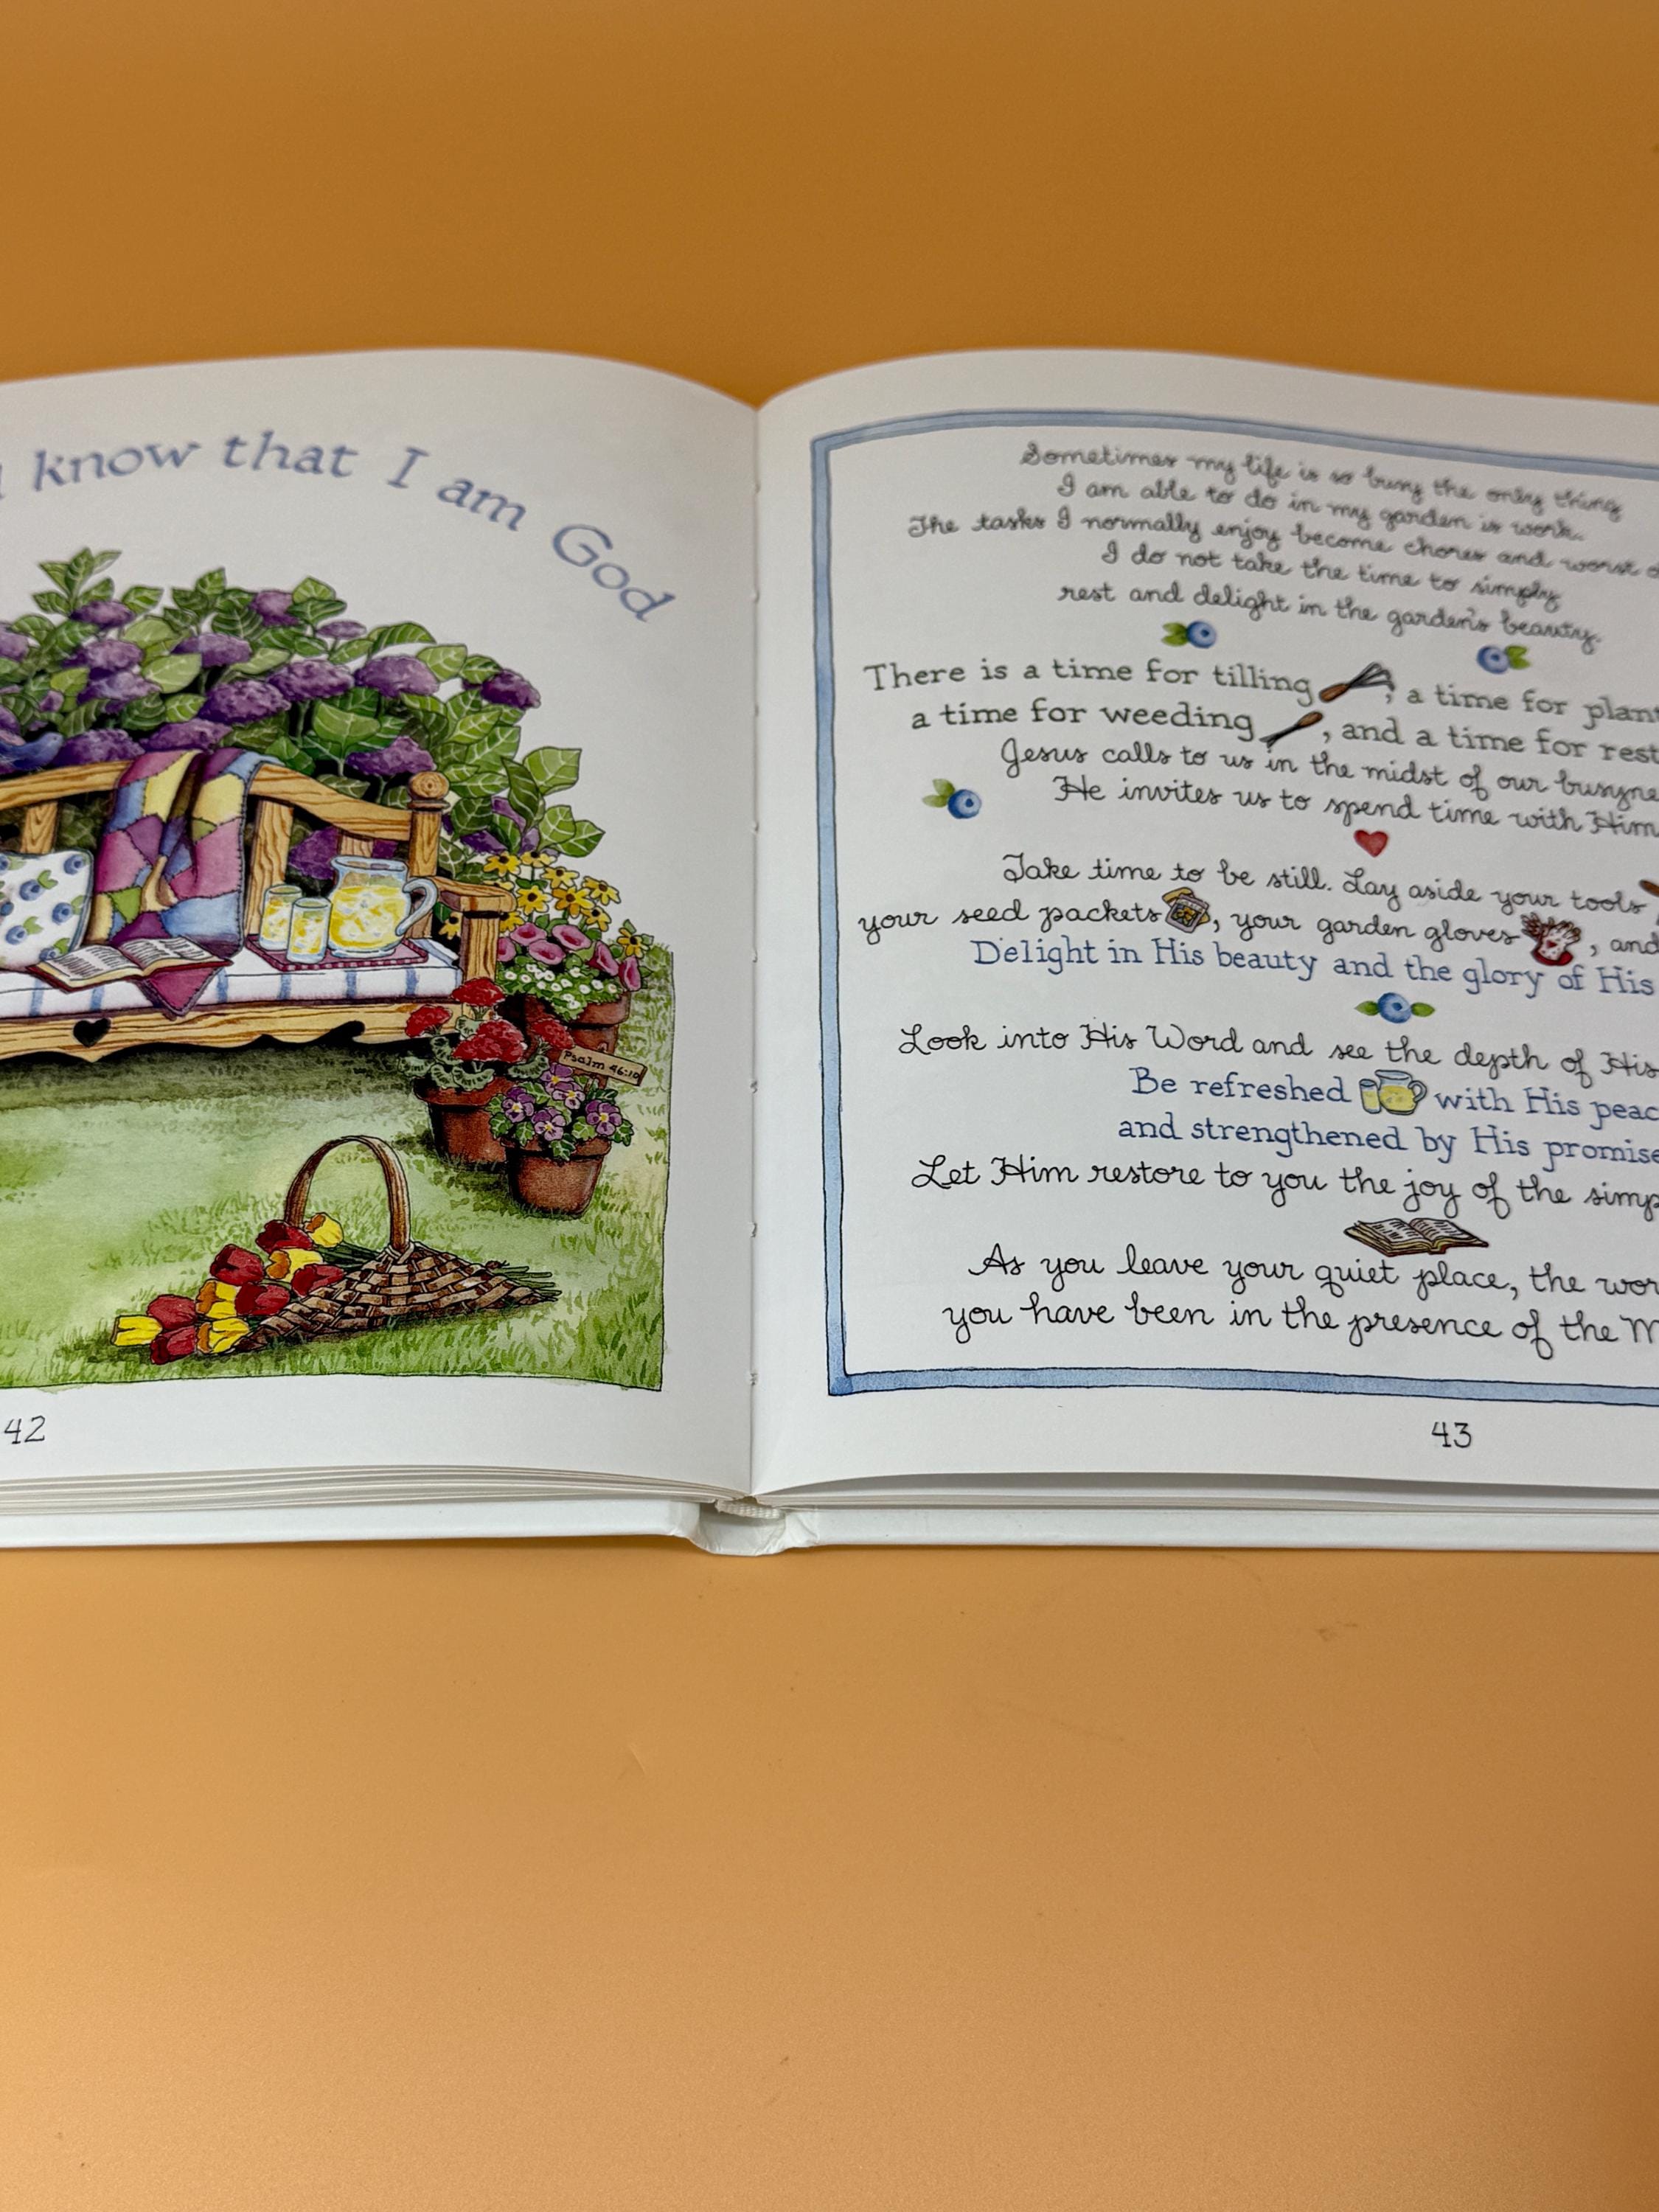 know that I am God
Psalm 46:10
42
Sometimes my life is so busy the only thing
I am able to do in my garden is work.
The tasks I normally enjoy become chores and worst
I do not take the time to simply
rest and delight in the garden's beauty.
There is a time for tilling, a time for plant
a time for weeding, and a time for rest
Jesus calls to us in the midst of our busyne
He invites us to spend time with Him
Take time to be still. Lay aside your tools
your seed packets, your garden gloves, and
Delight in His beauty and the glory of His
Look into His Word and see the depth of His
Be refreshed with His peac
and strengthened by His promise
Let Him restore to you the joy of the simp
As you leave your quiet place, the wor
you have been in the presence of the M
43